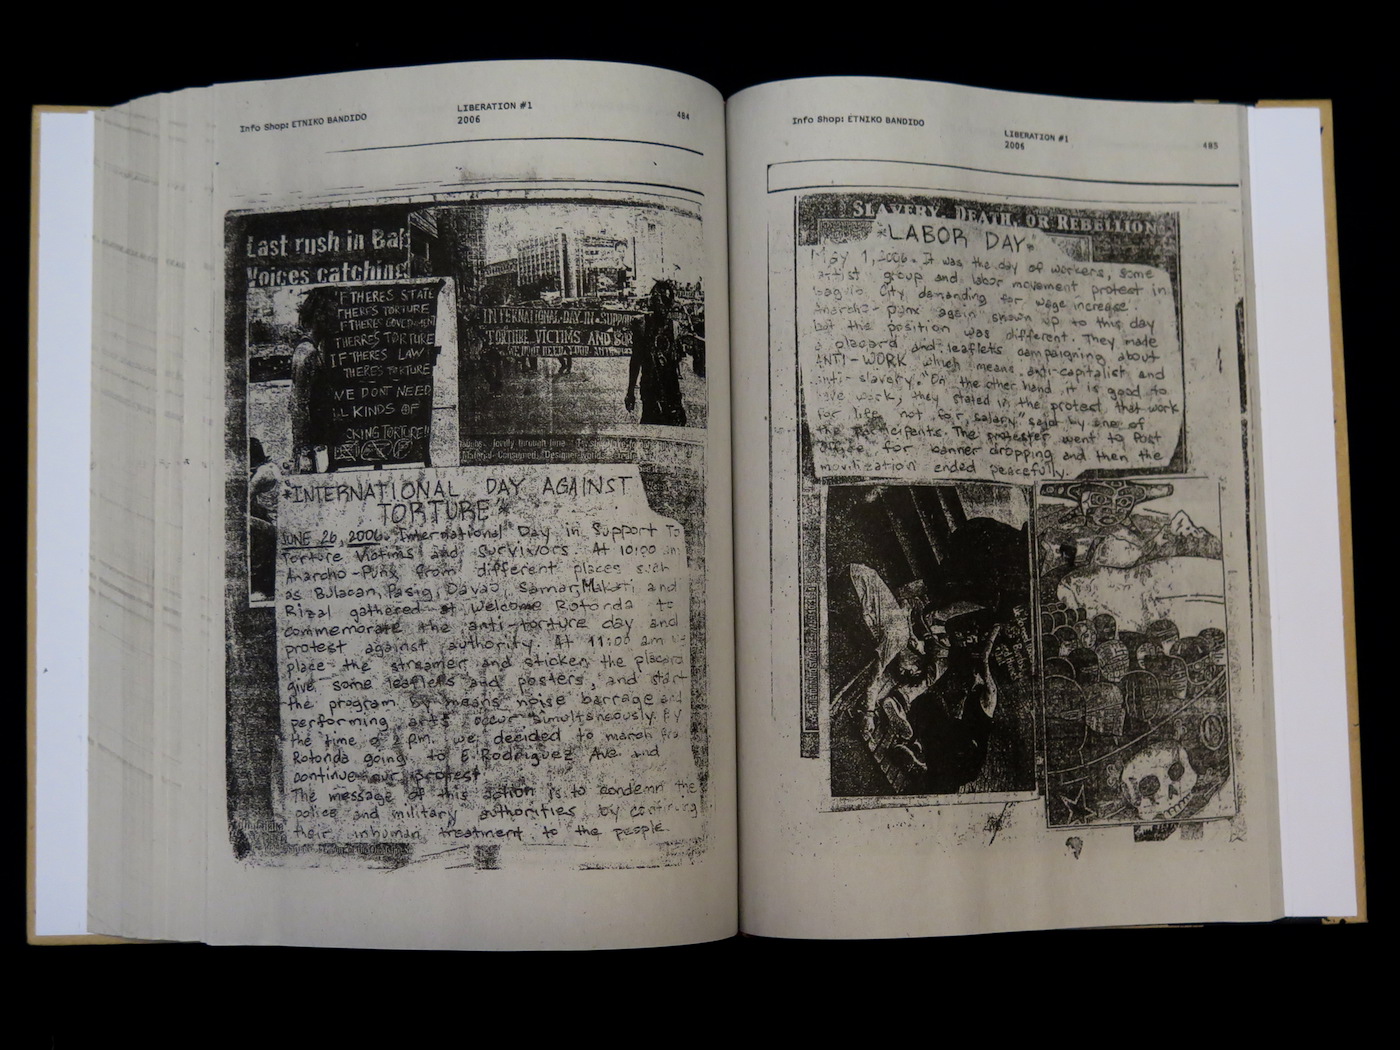 Info Shop: ETNIKO BANDIDO
LIBERATION #1
2006
484
Last rush in
Voices catching
IF THERES STATE
THERES TORTURE
IF THERES GOVERNMENT
THERRES TORTURE
IF THERES LAW
THERES TORTURE
WE DONT NEED
ALL KINDS OF
TORTURE!!
INTERNATIONAL DAY IN SUPPORT
TORTURE VICTIMS AND SUR
WE DONT NEED YOUR
lovely through time
Material Consumed, Designer
"INTERNATIONAL DAY AGAINST
TORTURE"
JUNE 26, 2006. International Day in Support To
Torture Victims and Survivors. At 10:00 am
Anarcho-Punx from different places such
as Bulacan, Pasig, Davao, Samar, Makati and
Rizal gathered at Welcome Rotonda to
commemorate the anti-torture day and
protest against authority. At 11:00 am
place the streamer and sticken the placard
give some leaflets and posters, and start
the program by means noise barrage and
performing arts occur simultaneously. By
the time of pm. we decided to march
Rotonda going to E. Rodriguez Ave. and
continue our protest
The message of this action is to condemn the
police and military authorities by continuing
their inhuman treatment to the people.
Info Shop: ETNIKO BANDIDO
LIBERATION #1
2006
485
SLAVERY, DEATH, OR REBELLION
LABOR DAY
May 1, 2006. It was the day of workers, some
artist group and labor movement protest in
baguio City demanding for wage increase.
Anarcho-punx again shown up to this day
but this position was different. They made
a placard and leaflets campaigning about
ANTI-WORK which means anti-capitalist and
anti-slavery. "On the other hand it is good to
have work, they stated in the protest, that work
for life not for salary" said by one of
the participents. The protester went to Post
office for banner dropping and then the
movilization ended peacefully.